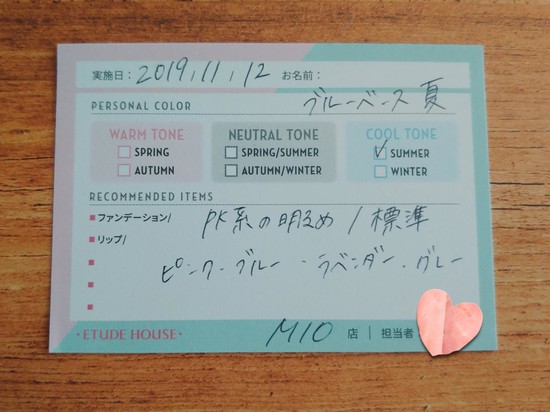 実施日: 2019, 11, 12 お名前:
PERSONAL COLOR ブルーベース 夏
WARM TONE NEUTRAL TONE COOL TONE
SPRING SPRING/SUMMER SUMMER
AUTUMN AUTUMN/WINTER WINTER
RECOMMENDED ITEMS
ファンデーション/ PK系の明るめ / 標準
リップ/
ピンク・ブルー・ラベンダー・グレー
・ETUDE HOUSE・ MIO 店 | 担当者